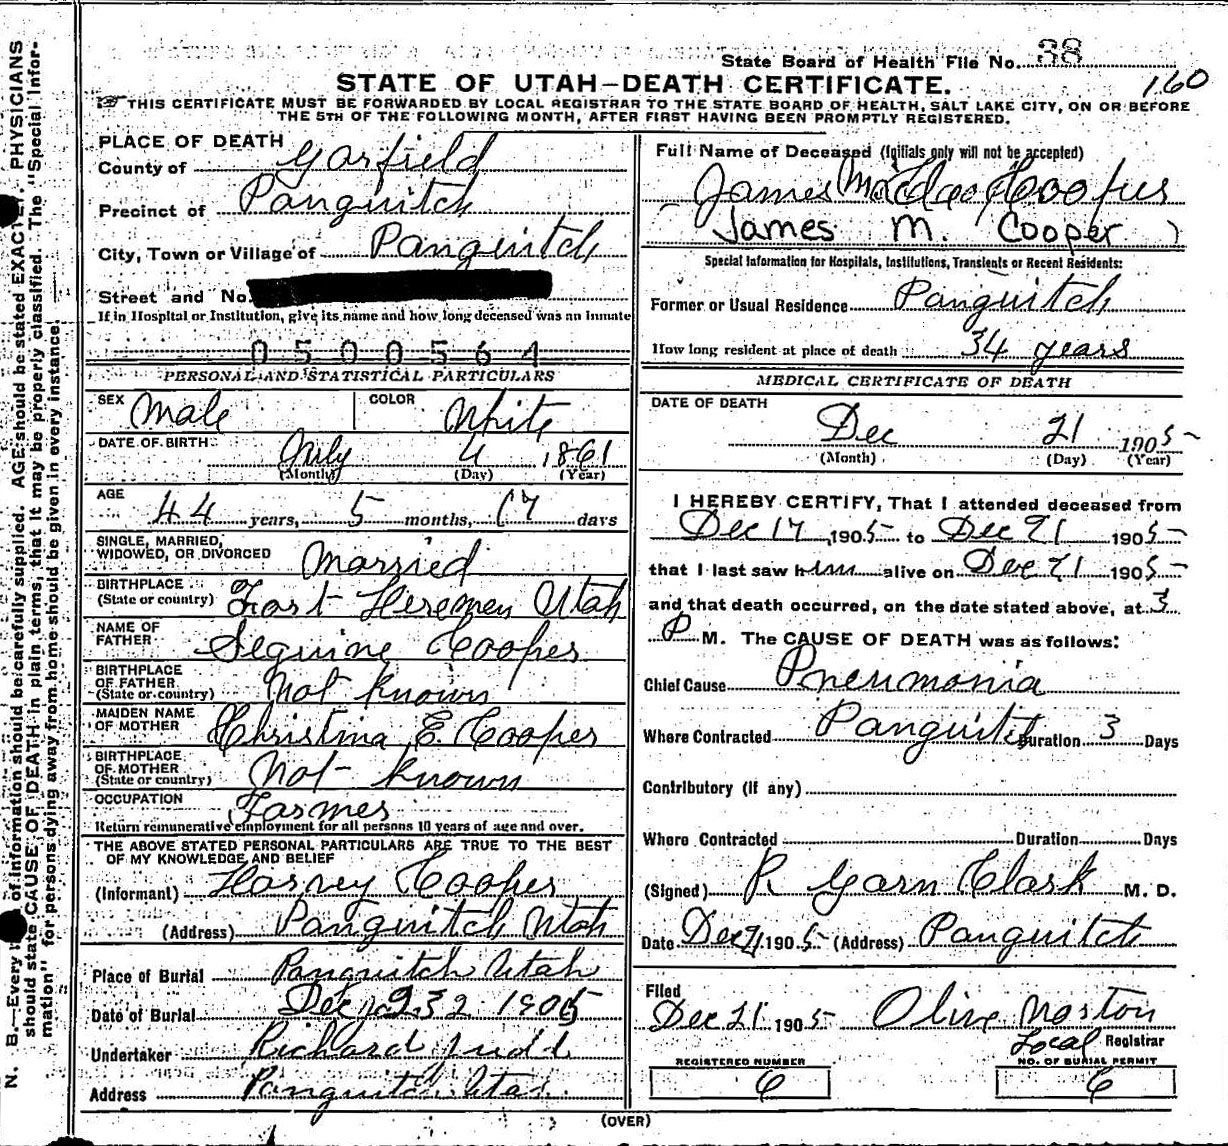 State Board of Health File No. 38
160
STATE OF UTAH—DEATH CERTIFICATE.
THIS CERTIFICATE MUST BE FORWARDED BY LOCAL REGISTRAR TO THE STATE BOARD OF HEALTH, SALT LAKE CITY, ON OR BEFORE
THE 5TH OF THE FOLLOWING MONTH, AFTER FIRST HAVING BEEN PROMPTLY REGISTERED.
PLACE OF DEATH
County of Garfield
Precinct of Panguitch
City, Town or Village of Panguitch
Street and No.
If in Hospital or Institution, give its name and how long deceased was an inmate
0500564
PERSONAL AND STATISTICAL PARTICULARS
SEX Male COLOR White
DATE OF BIRTH July 4 1861
(Month) (Day) (Year)
AGE 44 years, 5 months, 17 days
SINGLE, MARRIED,
WIDOWED, OR DIVORCED Married
BIRTHPLACE
(State or country) Fort Heremen Utah
NAME OF
FATHER Seguine Cooper
BIRTHPLACE
OF FATHER
(State or country) Not known
MAIDEN NAME
OF MOTHER Christina E. Cooper
BIRTHPLACE
OF MOTHER
(State or country) Not known
OCCUPATION Farmer
Return remunerative employment for all persons 10 years of age and over.
THE ABOVE STATED PERSONAL PARTICULARS ARE TRUE TO THE BEST
OF MY KNOWLEDGE AND BELIEF
(Informant) Harvey Cooper
(Address) Panguitch Utah
Place of Burial Panguitch Utah
Date of Burial Dec 1905
Undertaker Richard Judd
Address Panguitch Utah
Full Name of Deceased (Initials only will not be accepted)
James Cooper
(James M. Cooper)
Special Information for Hospitals, Institutions, Transients or Recent Residents:
Former or Usual Residence Panguitch
How long resident at place of death 34 years
MEDICAL CERTIFICATE OF DEATH
DATE OF DEATH
Dec 21 1905
(Month) (Day) (Year)
I HEREBY CERTIFY, That I attended deceased from
Dec 17 1905 to Dec 21 1905
that I last saw him alive on Dec 21 1905
and that death occurred, on the date stated above, at 3
P M. The CAUSE OF DEATH was as follows:
Chief Cause Pneumonia
Where Contracted Panguitch Duration 3 Days
Contributory (if any)
Where Contracted Duration Days
(Signed) R Garn Clark M. D.
Date Dec 21 1905 (Address) Panguitch
Filed
Dec 21 1905 Olive Norton
Local Registrar
REGISTERED NUMBER NO. OF BURIAL PERMIT
6 6
(OVER)
N. B.—Every of information should be carefully supplied. AGE should be stated EXACTLY. PHYSICIANS
should state CAUSE OF DEATH in plain terms, that it may be properly classified. The "Special Infor-
mation" for persons dying away from home should be given in every instance.